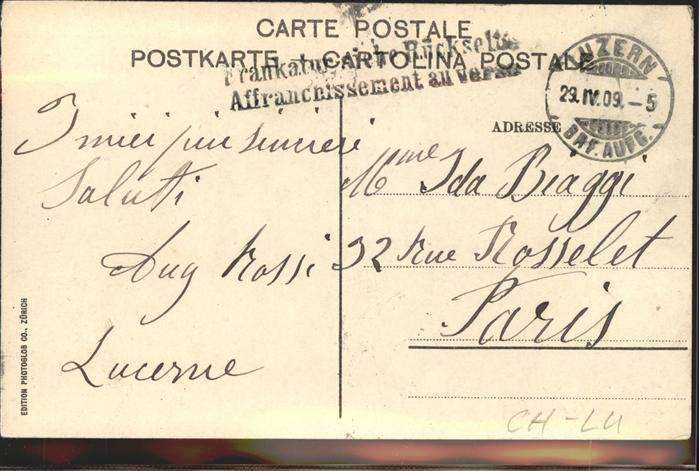 CARTE POSTALE
POSTKARTE + CARTOLINA POSTALE
Frankatur siehe Rückseite
Affranchissement au verso
LUZERN
29.IV.09.–5
BRF. AUFG.
ADRESSE
I miei più sinceri
Saluti
Aug Rossi
Lucerne
Mme Ida Biaggi
32 Rue Rosselet
Paris
EDITION PHOTOGLOB CO., ZÜRICH
CH-LU